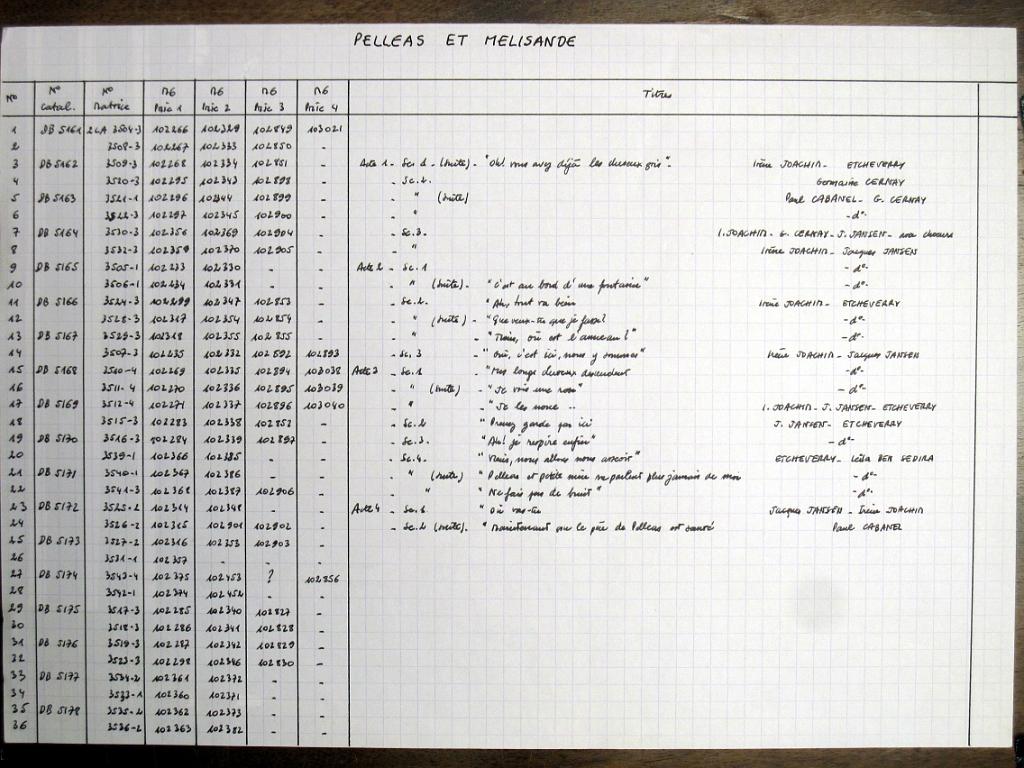 PELLEAS ET MELISANDE
N° N° N° n6 n6 n6 n6 Titres
Catal. Matrice Pric 1 Pric 2 Pric 3 Pric 4
1 DB 5161 2LA 3504-3 102266 102329 102849 103021
2 3508-3 102267 102333 102850 -
3 DB 5162 3509-3 102268 102334 102851 - Acte 1 - Sc. 1 - (suite) - "Oh! vous avez déjà les cheveux gris". Irène JOACHIM - ETCHEVERRY
4 3520-3 102295 102343 102898 - - Sc. 2. Germaine CERNAY
5 DB 5163 3521-1 102296 102344 102899 - - " (suite) Paul CABANEL - G. CERNAY
6 3522-3 102297 102345 102900 - - " - d°-
7 DB 5164 3530-3 102356 102369 102904 - - Sc. 3. - I. JOACHIM - G. CERNAY - J. JANSEN - avec choeurs
8 3532-3 102359 102370 102905 - - " Irène JOACHIM - Jacques JANSEN
9 DB 5165 3505-1 102233 102330 - - Acte 2 - Sc. 1 - d°-
10 3506-1 102234 102331 - - " (suite) - "c'est au bord d'une fontaine" - d°-
11 DB 5166 3524-3 102299 102347 102853 - - Sc. 2. - "Ah, tout va bien Irène JOACHIM - ETCHEVERRY
12 3528-3 102317 102354 102854 - " (suite) - "Que veux-tu que je fasse? - d°-
13 DB 5167 3529-3 102318 102355 102855 - " - "Tiens, où est l'anneau?" - d°-
14 3507-3 102235 102332 102892 102893 - Sc. 3 - "Oui, c'est ici, nous y sommes" Irène JOACHIM - Jacques JANSEN
15 DB 5168 3510-4 102269 102335 102894 103038 Acte 3 - Sc. 1 - "Mes longs cheveux descendent - d°-
16 3511-4 102270 102336 102895 103039 " (suite) - "Je vois une rose" - d°-
17 DB 5169 3512-4 102271 102337 102896 103040 - " - "Je les noue .. I. JOACHIM - J. JANSEN - ETCHEVERRY
18 3515-3 102283 102338 102852 - - Sc. 2 - "Prenez garde par ici J. JANSEN - ETCHEVERRY
19 DB 5170 3516-3 102284 102339 102897 - - Sc. 3. "Ah! je respire enfin" - d°-
20 3539-1 102366 102385 - - - Sc. 4. - "Viens, nous allons nous asseoir" ETCHEVERRY - Leïla BEN SEDIRA
21 DB 5171 3540-1 102367 102386 - - " (suite) "Pelleas et petite mère ne parlent plus jamais de moi - d°-
22 3541-3 102368 102387 102906 - " "Ne fais pas de bruit" - d°-
23 DB 5172 3525-2 102314 102348 - - Acte 4 - Sc. 1 "Où vas-tu Jacques JANSEN - Irène JOACHIM
24 3526-2 102315 102901 102902 - - Sc. 2 (suite). "Maintenant que le père de Pelleas est sauvé Paul CABANEL
25 DB 5173 3527-2 102316 102353 102903 -
26 3531-1 102357 - - -
27 DB 5174 3543-4 102375 102453 ? 102856
28 3542-1 102374 102452 - -
29 DB 5175 3517-3 102285 102340 102827 -
30 3518-3 102286 102341 102828 -
31 DB 5176 3519-3 102287 102342 102829 -
32 3523-3 102298 102346 102830 -
33 DB 5177 3534-2 102361 102372 - -
34 3533-1 102360 102371 - -
35 DB 5178 3535-2 102362 102373 - -
36 3536-2 102363 102382 - -